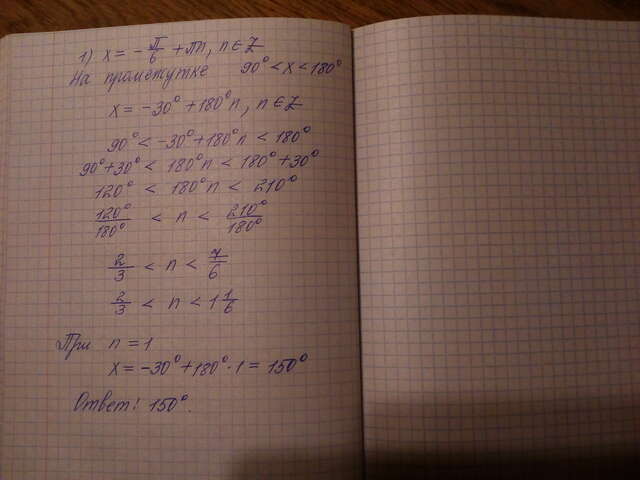 1) x = - π/6 + πn, n ∈ Z
На промежутке 90° < x < 180°
x = -30° + 180°n, n ∈ Z
90° < -30° + 180°n < 180°
90° + 30° < 180°n < 180° + 30°
120° < 180°n < 210°
120°/180° < n < 210°/180°
2/3 < n < 7/6
2/3 < n < 1 1/6
При n = 1
x = -30° + 180° · 1 = 150°
Ответ: 150°.